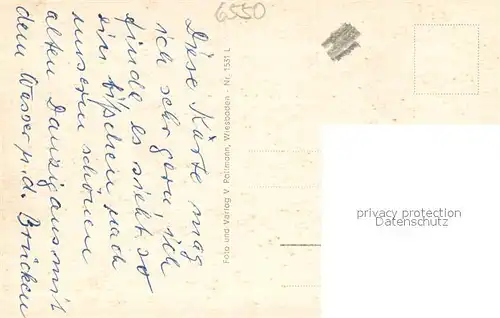 6550
Diese Karte mag
ich sehr gern ich
finde es sieht so
ein bißchen nach
unserem schönen
alten Danzig aus mit
dem Wasser u. d. Brücken
Foto und Verlag W. Pollmann, Wiesbaden - Nr. 1531 L
privacy protection
Datenschutz